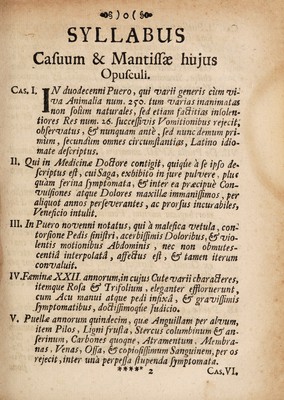 )o(
SYLLABUS
Casuum & Mantissæ hujus
Opusculi.
CAS. I. IN duodecenni Puero, qui varii generis cùm vi-
va Animalia num. 250. tum varias inanimatas
non solùm naturales, sed etiam factitias insolen-
tiores Res num. 26. successivis Vomitionibus rejecit,
observatus, & nunquam antè, sed nunc demum pri-
mùm, secundum omnes circumstantias, Latino idio-
mate descriptus.
II. Qui in Medicinæ Doctore contigit, quiqúe à se ipso de-
scriptus est, cui Saga, exhibito in jure pulvere, plus
quàm ferina symptomata, & inter ea præcipuè Con-
vulsiones atque Dolores maxillæ immanissimos, per
aliquot annos perseverantes, ac prorsus incurabiles,
Veneficio intulit.
III. In Puero novenni notatus, qui à malefica vetula, con-
torsione Pedis sinistri, acerbissimis Doloribus, & vio-
lentis motionibus Abdominis, nec non obmutes-
centiâ interpolatâ, affectus est, & tamen iterum
convaluit.
IV. Fæminæ XXII. annorum, in cujus Cute varii characteres,
itemque Rosa & Trifolium, eleganter efflorueunt,
cum Acu manui atque pedi infixâ, & gravissimis
symptomatibus, doctissimoque Judicio.
V. Puellæ annorum quindecim, quæ Anguillam per alvum,
item Pilos, Ligni frusta, Stercus columbinum & an-
serinum, Carbones quoque, Atramentum, Membra-
nas, Venas, Ossa, & copiosissimum Sanguinem, per os
rejecit, inter unà perpessa stupenda symptomata.
**** 2 CAS. VI.